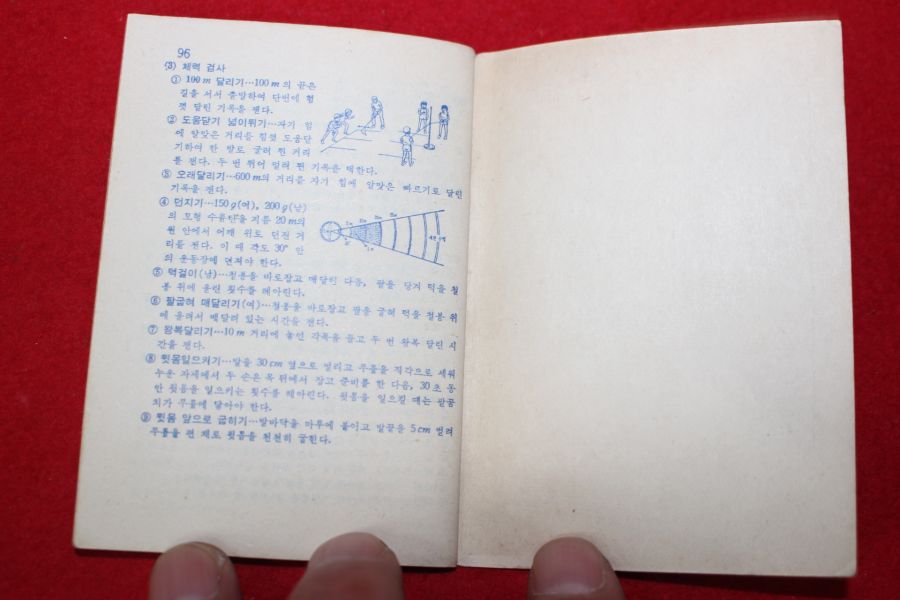 96
(3) 체력 검사
① 100m 달리기…100m의 곧은
길을 서서 출발하여 단번에 힘
껏 달린 기록을 잰다.
② 도움닫기 넓이뛰기…자기 힘
에 알맞은 거리를 힘껏 도움닫
기하여 한 발로 굴러 뛴 거리
를 잰다. 두 번 뛰어 멀리 뛴 기록을 택한다.
③ 오래달리기…600m의 거리를 자기 힘에 알맞은 빠르기로 달린
기록을 잰다.
④ 던지기…150g(여), 200g(남)
의 모형 수류탄을 지름 20m의
원 안에서 어깨 위로 던진 거
리를 잰다. 이 때 각도 30° 안
의 운동장에 던져야 한다.
⑤ 턱걸이(남)…철봉을 바로잡고 매달린 다음, 팔을 당겨 턱을 철
봉 위에 올린 횟수를 헤아린다.
⑥ 팔굽혀 매달리기(여)…철봉을 바로잡고 팔을 굽혀 턱을 철봉 위
에 올려서 매달려 있는 시간을 잰다.
⑦ 왕복달리기…10m 거리에 놓인 각목을 들고 두 번 왕복 달린 시
간을 잰다.
⑧ 윗몸일으켜기…발을 30cm 옆으로 벌리고 무릎을 직각으로 세워
누운 자세에서 두 손은 목 뒤에서 잡고 준비를 한 다음, 30초 동
안 윗몸을 일으키는 횟수를 헤아린다. 윗몸을 일으킬 때는 팔꿈
치가 무릎에 닿아야 한다.
⑨ 윗몸 앞으로 굽히기…발바닥을 마루에 붙이고 발끝을 5cm 벌려
무릎을 편 채로 윗몸을 천천히 굽힌다.